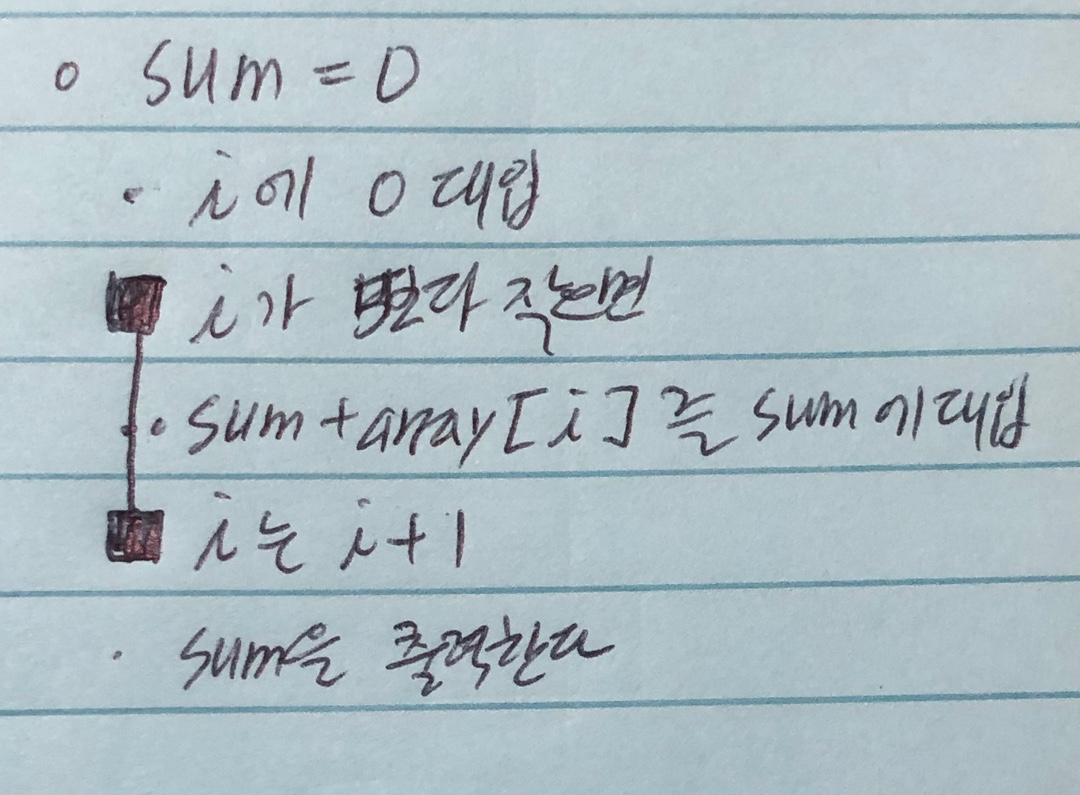 ○ sum = 0
· i에 0 대입
■ i가 5보다 작으면
· sum + array[i]를 sum에 대입
■ i는 i+1
· sum을 출력한다